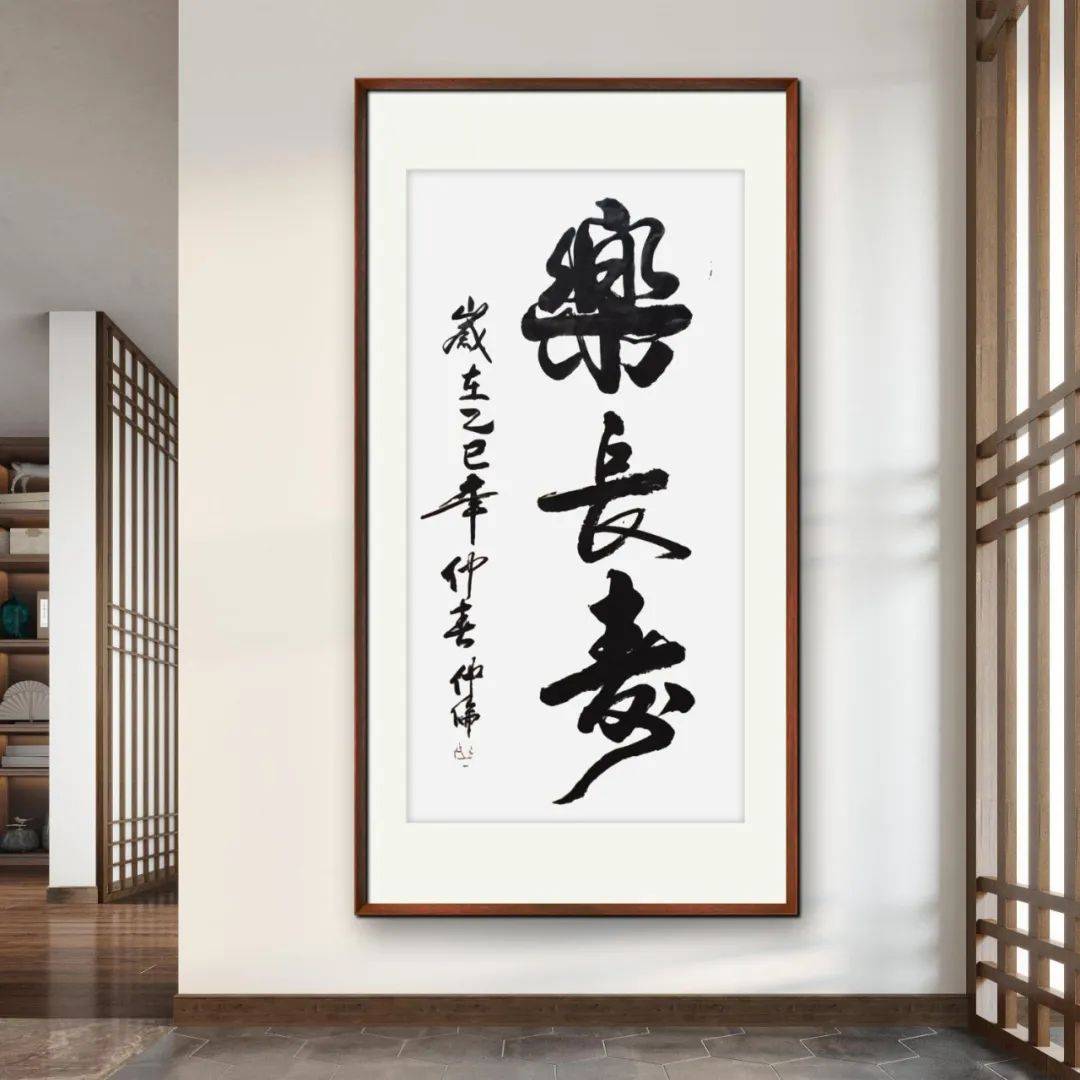 樂長壽
歲在乙巳年仲春仲佛